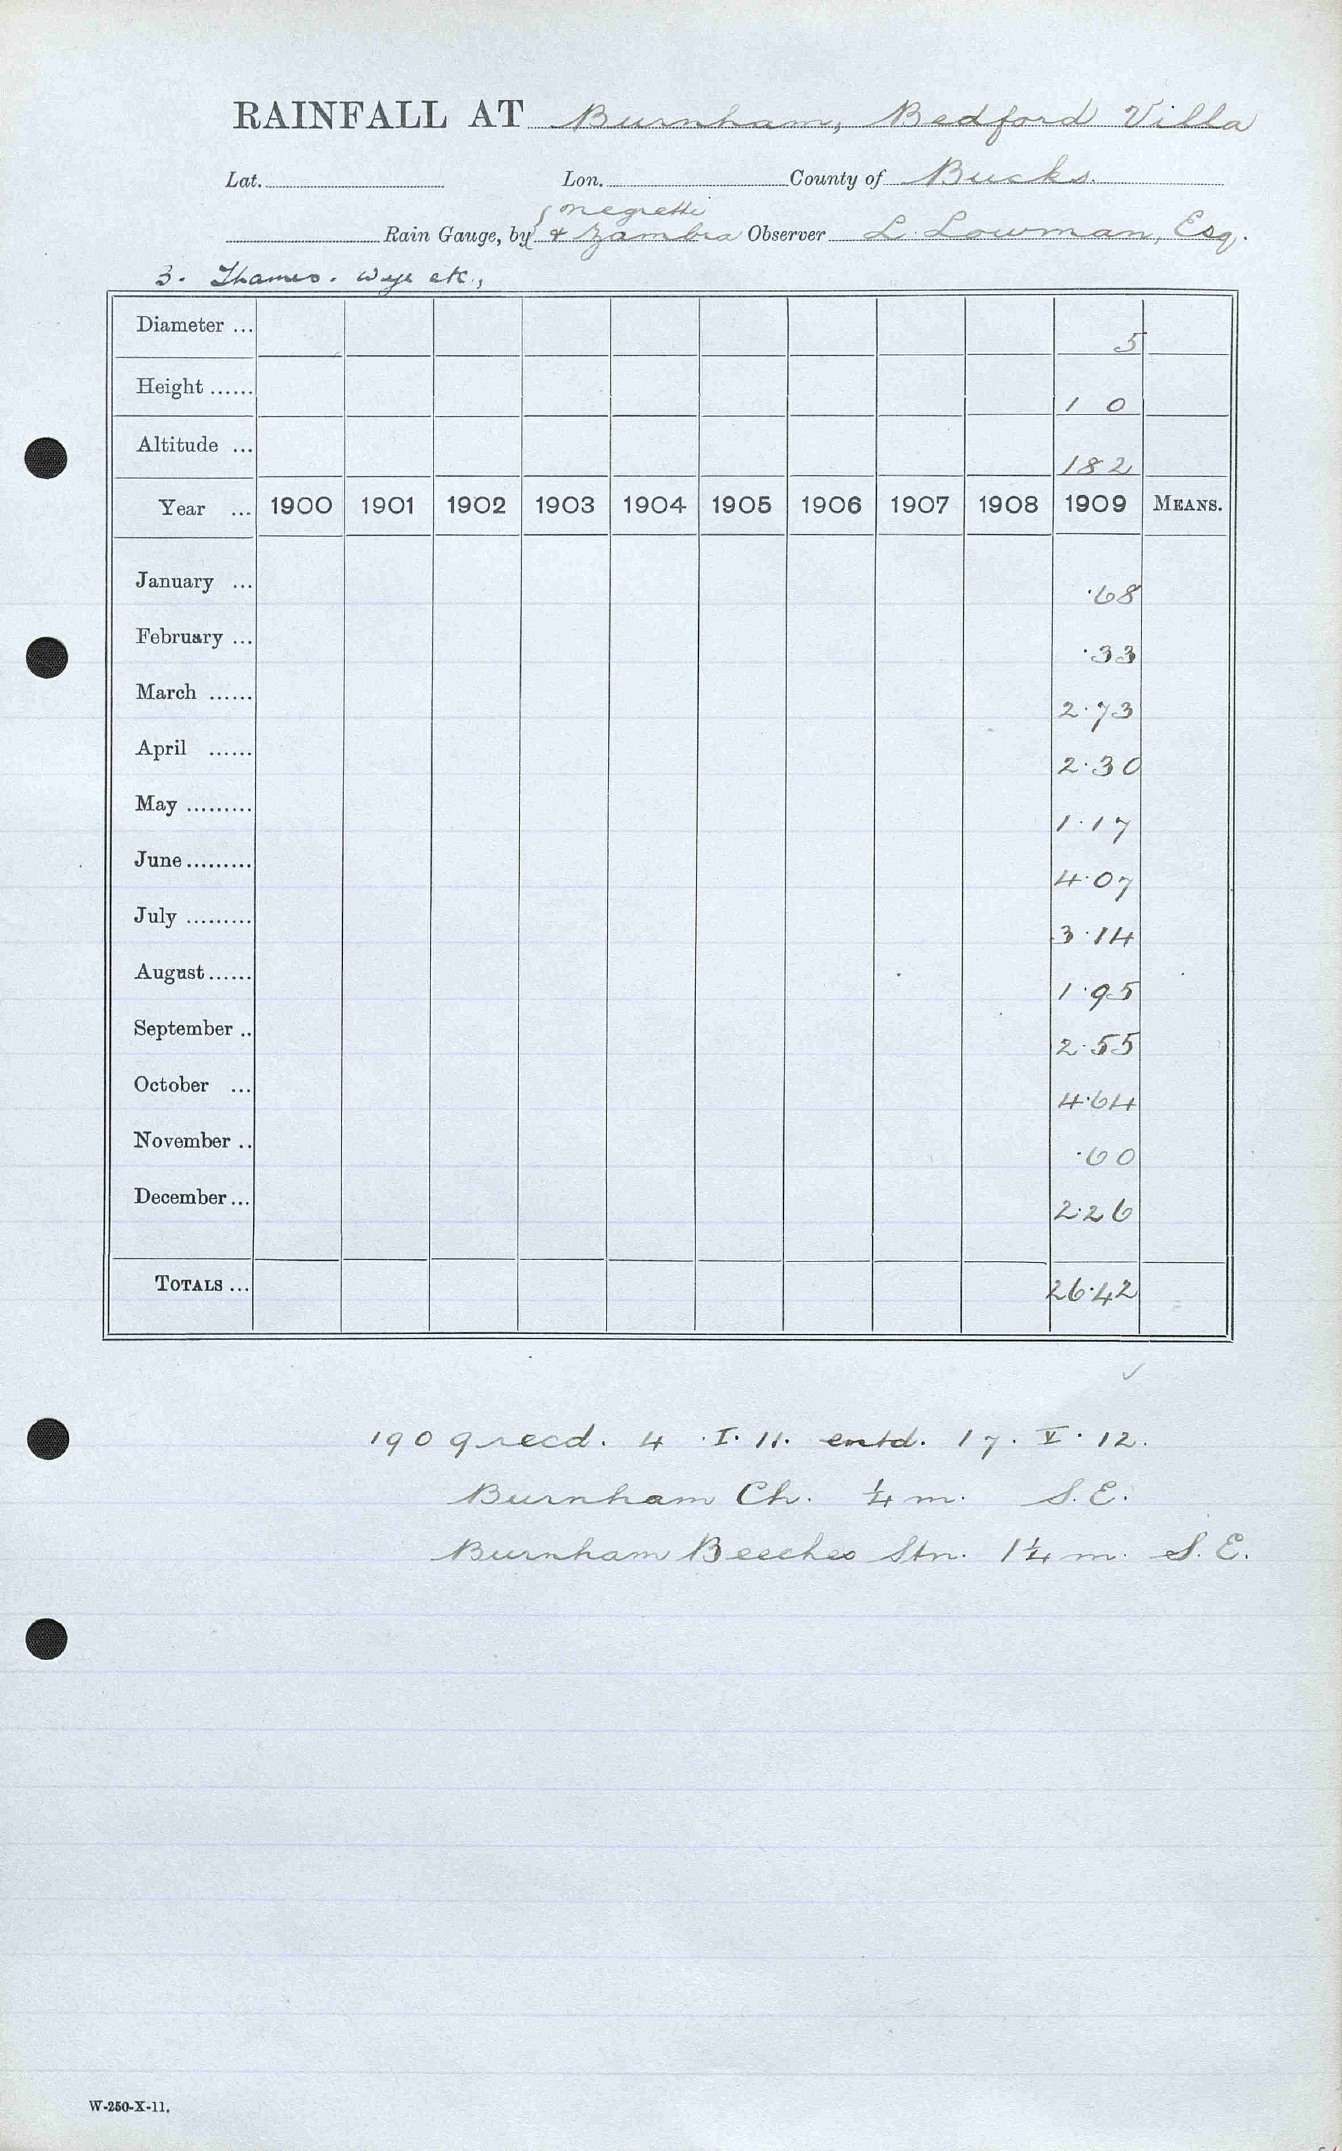 RAINFALL AT Burnham, Bedford Villa
Lat. Lon. County of Bucks.
Negretti
Rain Gauge, by & Zambra Observer L. Lowman, Esq.
3. Thames. Wye etc.,
Diameter ... 5
Height ...... 1 0
Altitude ... 182
Year ... 1900 1901 1902 1903 1904 1905 1906 1907 1908 1909 MEANS.
January ... ·68
February ... ·33
March ...... 2·73
April ...... 2·30
May ......... 1·17
June ......... 4·07
July ......... 3·14
August ...... 1·95
September .. 2·55
October ... 4·64
November .. ·60
December ... 2·26
TOTALS ... 26·42
1909 recd. 4.I.11. entd. 17.V.12.
Burnham Ch. ¼ m. S.E.
Burnham Beeches Stn. 1¼ m. S.E.
W-250-X-11.